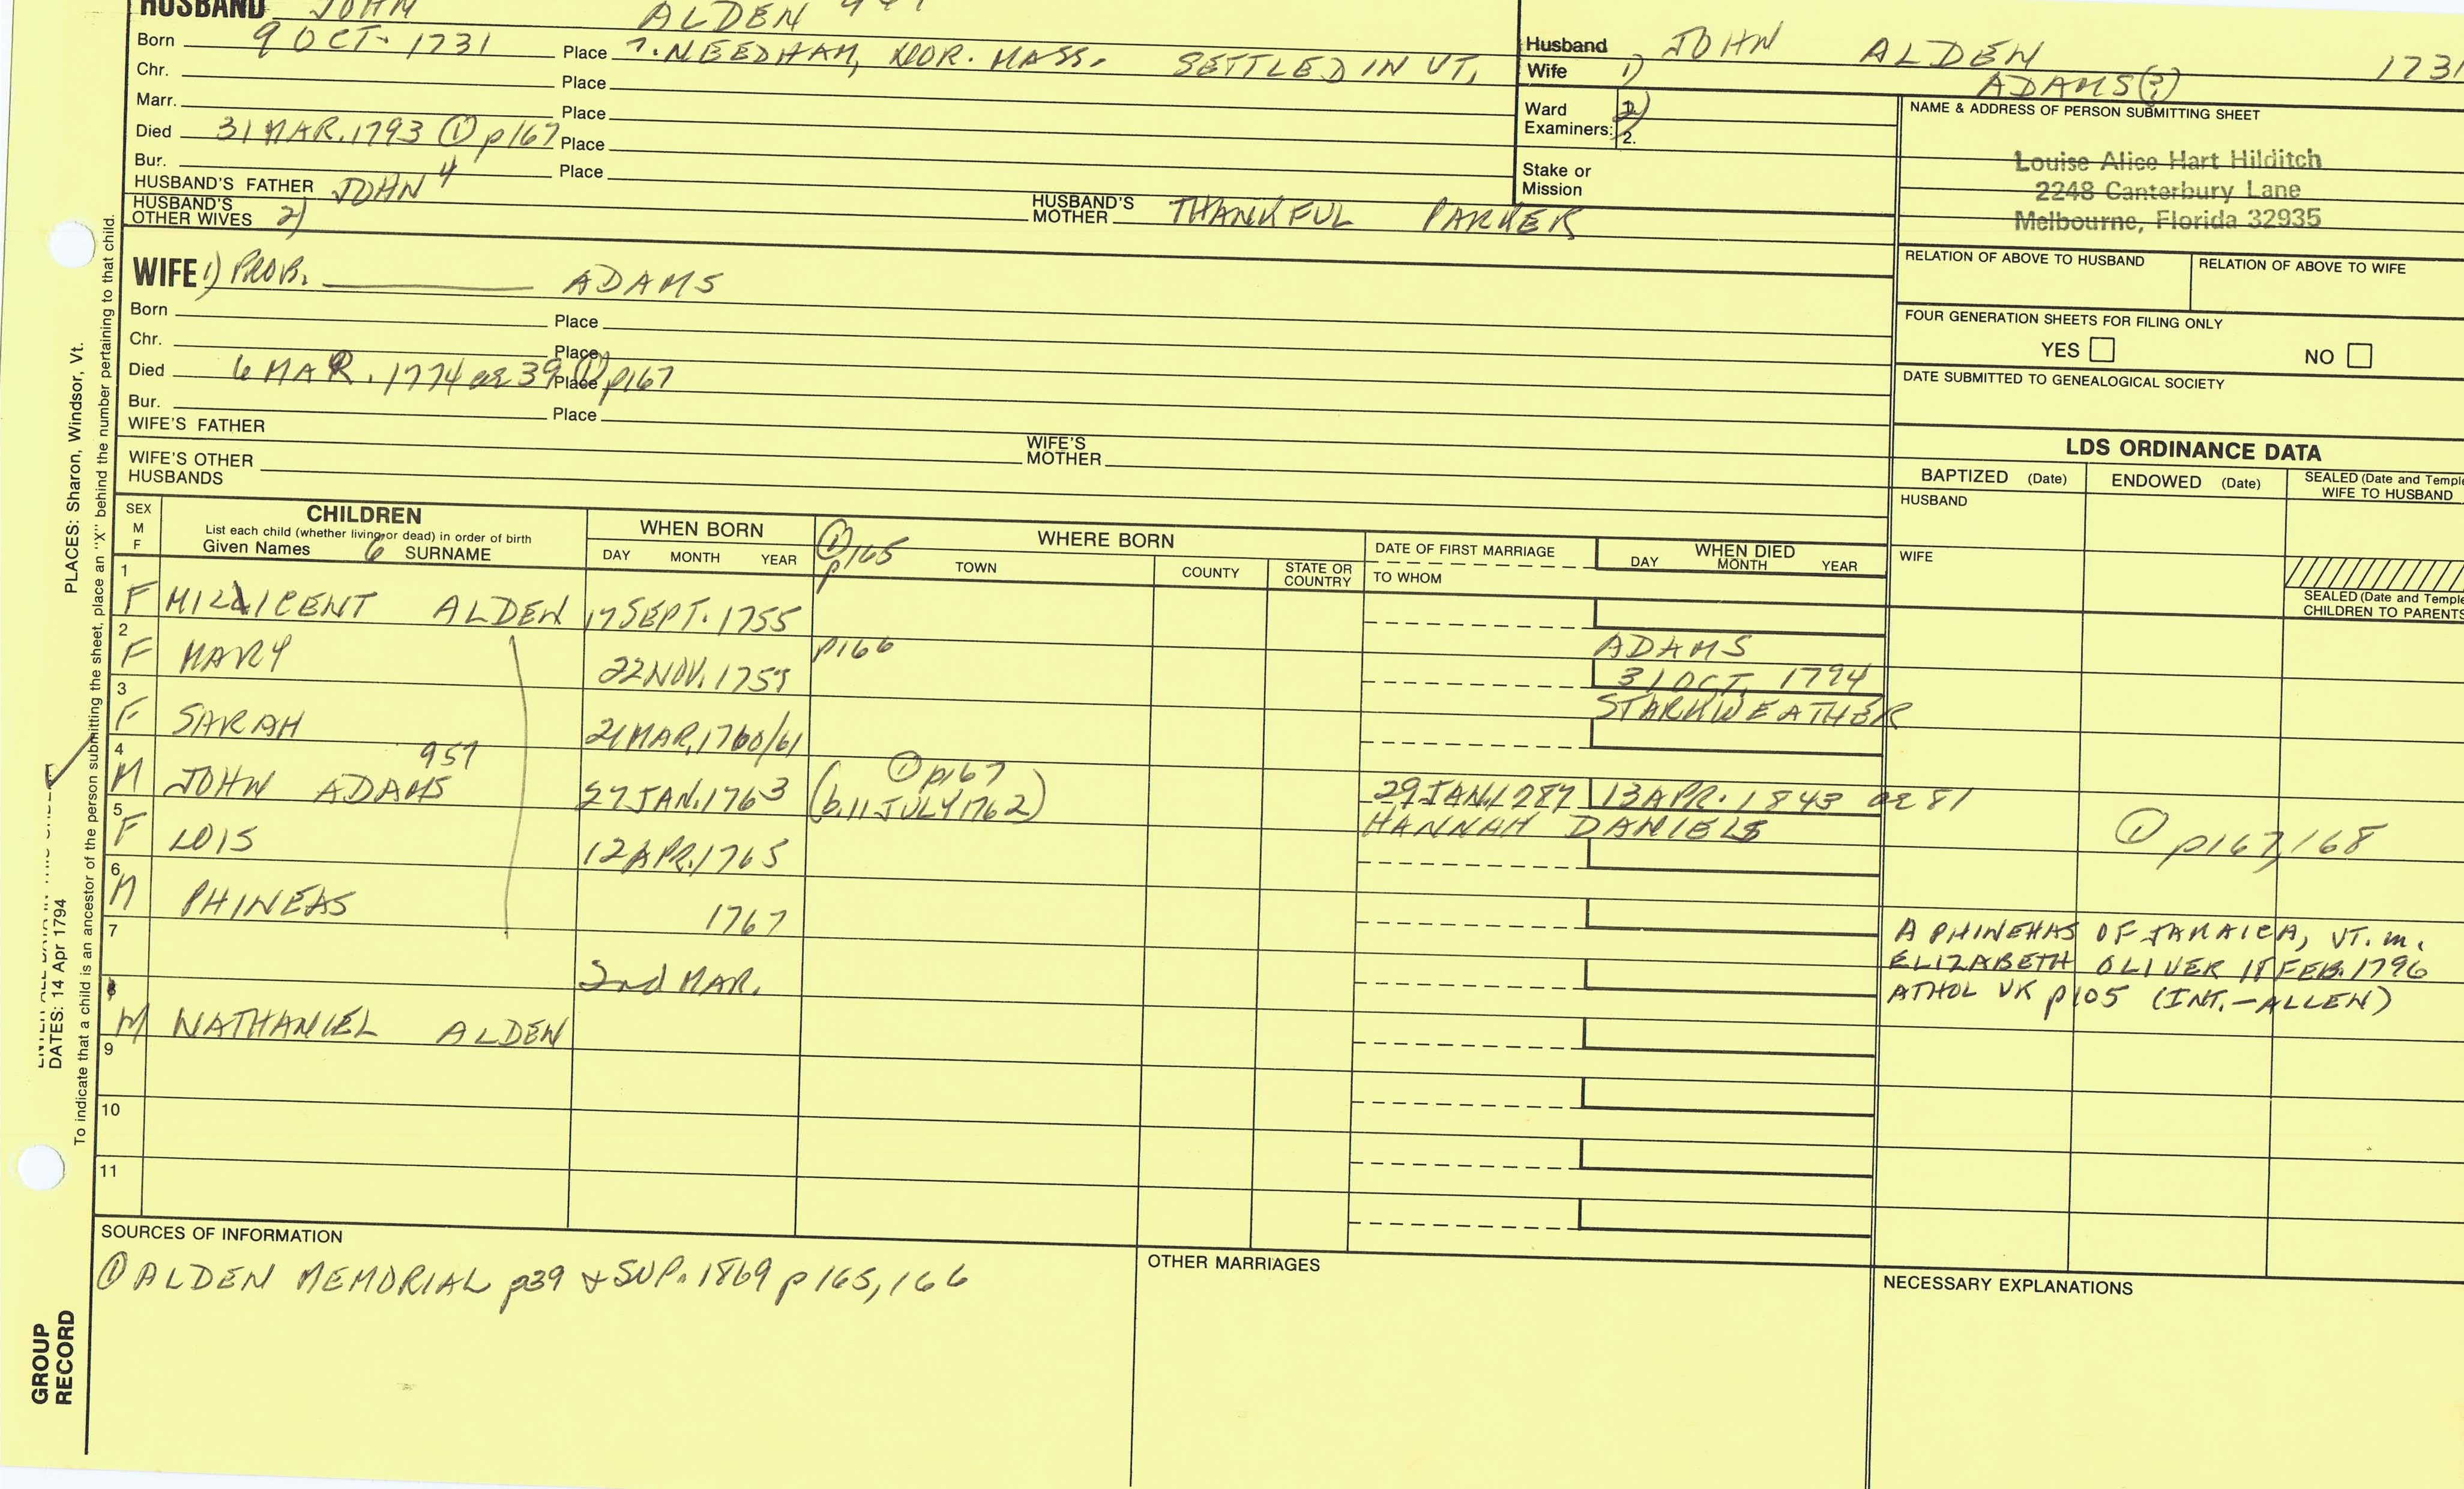 HUSBAND JOHN ALDEN
Born 9 OCT. 1731 Place ?. NEEDHAM, NOR. MASS. SETTLED IN VT.
Chr. Place
Marr. Place
Died 31 MAR. 1793 ① p167 Place
Bur. Place
HUSBAND'S FATHER JOHN 4
HUSBAND'S OTHER WIVES 2)
HUSBAND'S MOTHER THANKFUL PARKER
Husband JOHN ALDEN 1731
Wife 1) ADAMS(?)
Ward Examiners: 2)
2.
Stake or Mission
NAME & ADDRESS OF PERSON SUBMITTING SHEET
Louise Alice Hart Hilditch
2248 Canterbury Lane
Melbourne, Florida 32935
RELATION OF ABOVE TO HUSBAND RELATION OF ABOVE TO WIFE
FOUR GENERATION SHEETS FOR FILING ONLY
YES NO
DATE SUBMITTED TO GENEALOGICAL SOCIETY
WIFE 1) PROB. ADAMS
Born Place
Chr. Place
Died 6 MAR. 1774 ae 39 Place ① p167
Bur. Place
WIFE'S FATHER
WIFE'S MOTHER
WIFE'S OTHER HUSBANDS
LDS ORDINANCE DATA
BAPTIZED (Date) ENDOWED (Date) SEALED (Date and Temple
WIFE TO HUSBAND
HUSBAND
WIFE
SEALED (Date and Temple
CHILDREN TO PARENTS
SEX M F
CHILDREN
List each child (whether living or dead) in order of birth
Given Names 6 SURNAME
WHEN BORN
DAY MONTH YEAR
① p165
WHERE BORN
TOWN COUNTY STATE OR COUNTRY
DATE OF FIRST MARRIAGE
TO WHOM
WHEN DIED
DAY MONTH YEAR
1 F MILLICENT ALDEN 17 SEPT. 1755
2 F MARY 22 NOV. 1759 p166 ADAMS
31 OCT. 1794
3 F SARAH 21 MAR. 1760/61 STARKWEATHER
957
4 M JOHN ADAMS 27 JAN. 1763 (b. 11 JULY 1762) ① p167 29 JAN. 1787 13 APR. 1843 ae 81
HANNAH DANIELS
① p167,168
5 F LOIS 12 APR. 1765
6 M PHINEAS 1767
7 2nd MAR.
A PHINEHAS OF JAMAICA, VT. m.
ELIZABETH OLIVER 18 FEB. 1796
ATHOL VR p105 (INT.-ALLEN)
8 M NATHANIEL ALDEN
9
10
11
SOURCES OF INFORMATION
① ALDEN MEMORIAL p39 & SUP. 1869 p165,166
OTHER MARRIAGES
NECESSARY EXPLANATIONS
PLACES: Sharon, Windsor, Vt.
To indicate that a child is an ancestor of the person submitting the sheet, place an "X" behind the number pertaining to that child.
DATES: 14 Apr 1794
GROUP
RECORD